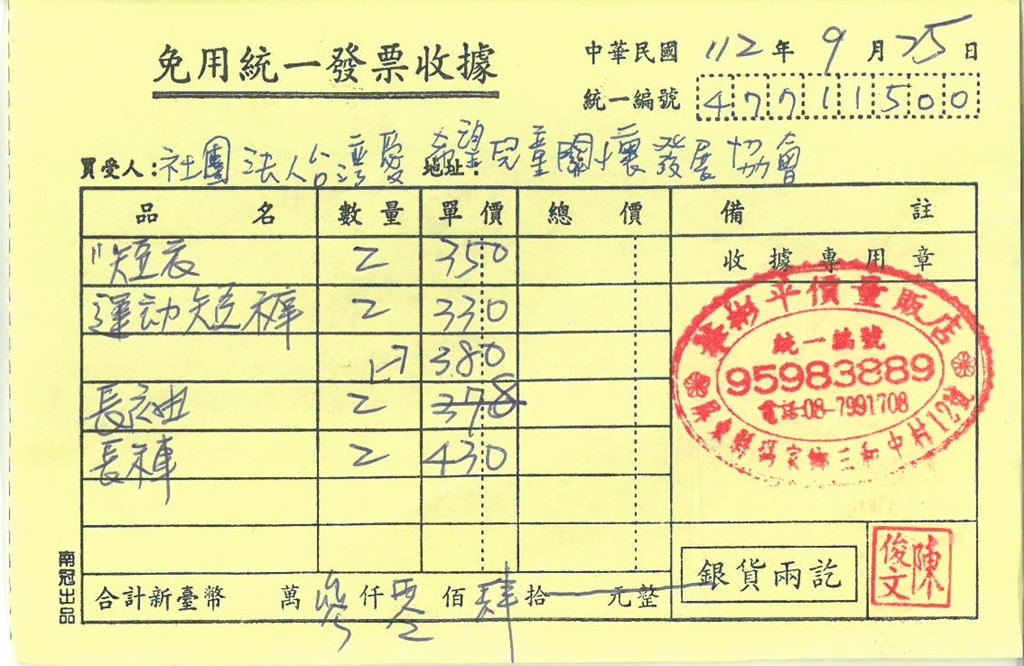 免用統一發票收據
中華民國 112 年 9 月 25 日
統一編號 47711500
買受人：社團法人台灣愛希望兒童關懷發展協會
地址：
品名 數量 單價 總價 備註
收據專用章
短衣 2 350
運动短褲 2 330
380
長衣 2 378
長褲 2 430
平價量販店
統一編號
95983889
電話:08-7991708
屏東縣瑪家鄉三和中村12號
合計新臺幣 萬 參 仟 零 佰 肆 拾 元整
銀貨兩訖
陳俊文
南冠出品